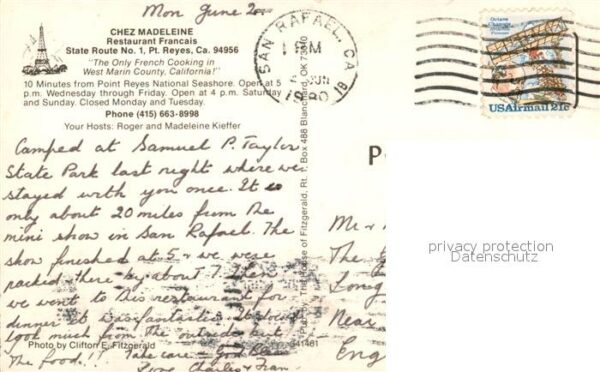 Mon June 2
CHEZ MADELEINE
Restaurant Francais
State Route No. 1, Pt. Reyes, Ca. 94956
"The Only French Cooking in
West Marin County, California!"
10 Minutes from Point Reyes National Seashore. Open at 5
p.m. Wednesday through Friday. Open at 4 p.m. Saturday
and Sunday. Closed Monday and Tuesday.
Phone (415) 663-8998
Your Hosts: Roger and Madeleine Kieffer
Camped at Samuel P. Taylor
State Park last night where we
stayed with you once. It is
only about 20 miles from the
mini show in San Rafael. The
show finished at 5 & we were
packed there by about 7. Then
we went to this restaurant for
dinner it was fantastic. It didn't
look much from the outside but
Photo by Clifton E. Fitzgerald
The food!! Take care
Love Charles & Fran
341461
House of Fitzgerald, Rt. 1, Box 488 Blanchard, OK 73010
SAN RAFAEL, CA
PM
JUN
1980
Octave
Chanute
Aviation
Pioneer
USAirmail 21c
P
Mr &
The
Long
Near
Eng
privacy protection
Datenschutz